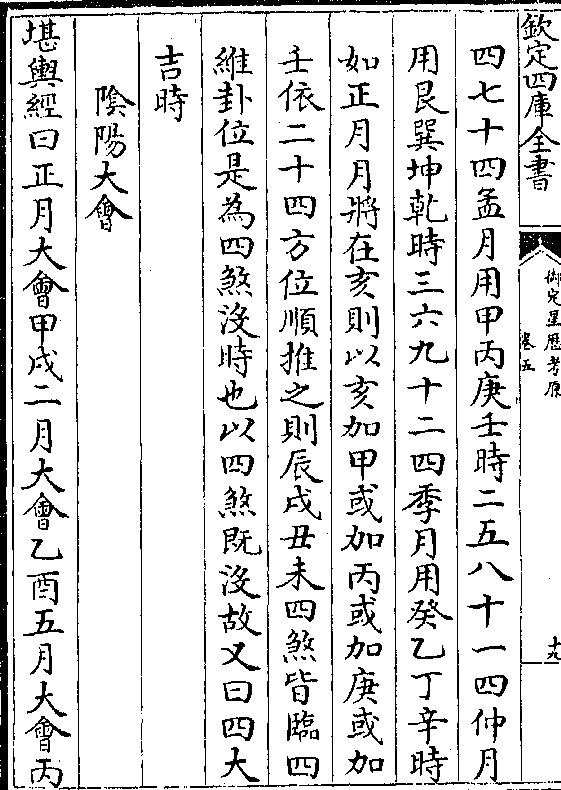 欽定四庫全書
御定星歷考原
卷五
十九
四七十四孟月用甲丙庚壬時二五八十一四仲月
用艮巽坤乾時三六九十二四季月用癸乙丁辛時
如正月月將在亥則以亥加甲或加丙或加庚或加
壬依二十四方位順推之則辰戌丑未四煞皆臨四
維卦位是為四煞沒時也以四煞既沒故又曰四大
吉時
陰陽大會
堪輿經曰正月大會甲戌二月大會乙酉五月大會丙